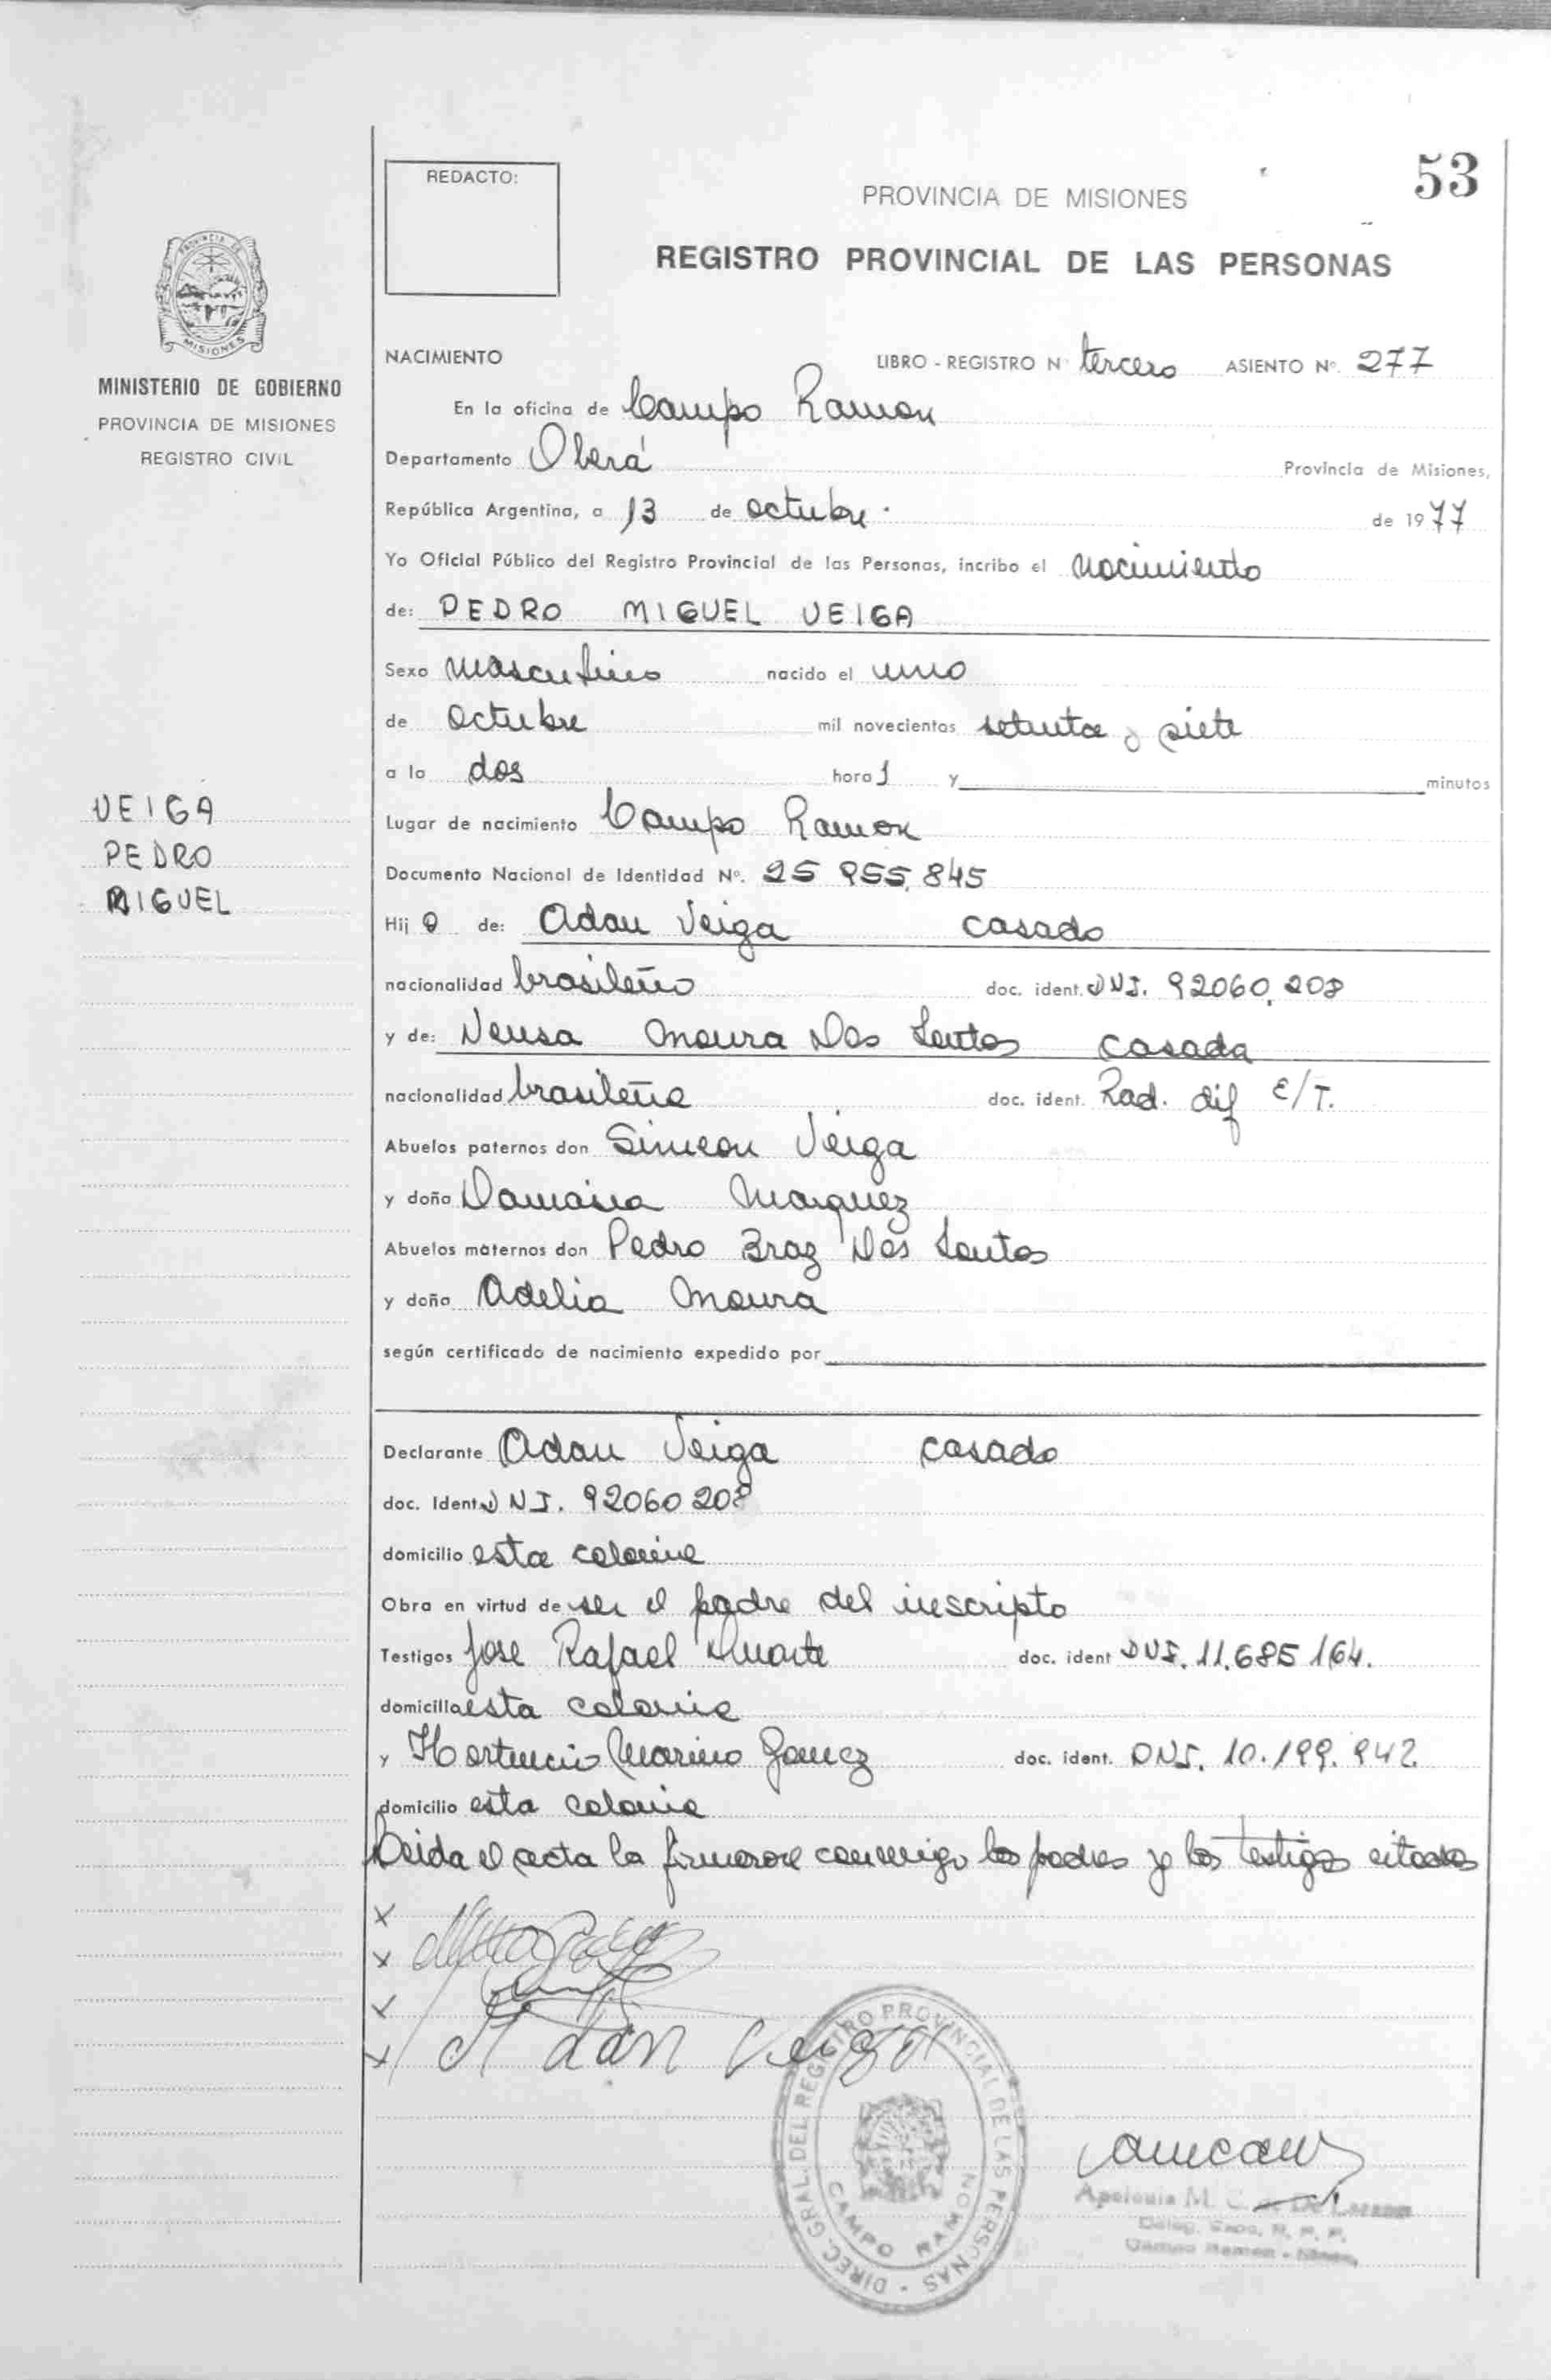 53
REDACTO:
PROVINCIA DE MISIONES
REGISTRO PROVINCIAL DE LAS PERSONAS
PROVINCIA DE
MISIONES
MINISTERIO DE GOBIERNO
PROVINCIA DE MISIONES
REGISTRO CIVIL
NACIMIENTO LIBRO - REGISTRO Nº tercero ASIENTO Nº. 277
En la oficina de Campo Ramon
Departamento Oberá Provincia de Misiones,
República Argentina, a 13 de octubre. de 1977
Yo Oficial Público del Registro Provincial de las Personas, incribo el nacimiento
de: PEDRO MIGUEL VEIGA
Sexo masculino nacido el uno
de octubre mil novecientos setenta y siete
a la dos hora s y minutos
VEIGA
PEDRO
MIGUEL
Lugar de nacimiento Campo Ramon
Documento Nacional de Identidad Nº. 25 955.845
Hij o de: Adan Veiga casado
nacionalidad brasileño doc. ident. DNI. 92060.208
y de: Neusa Moura Dos Santos casada
nacionalidad brasileña doc. ident. Rad. dif E/T.
Abuelos paternos don Simeon Veiga
y doña Marquez
Abuelos maternos don Pedro Braz Dos Santos
y doña Adelia Moura
según certificado de nacimiento expedido por
Declarante Adan Veiga casado
doc. Ident. DNI. 92060208
domicilio esta colonia
Obra en virtud de ser el padre del inscripto
Testigos Jose Rafael Duarte doc. ident DNI. 11.685 164.
domicilla esta colonia
y Hortencio Marino Gomez doc. ident. DNI. 10.199.942
domicilio esta colonia
Leida el acta la firmaron conmigo los padres y los testigos citados
x
x
x
x Adan Veiga
DIREC. GRAL. DEL REGISTRO PROVINCIAL DE LAS PERSONAS
CAMPO RAMON
Apolonia M. C. de De Lozano
Campo Ramon - Mnes,